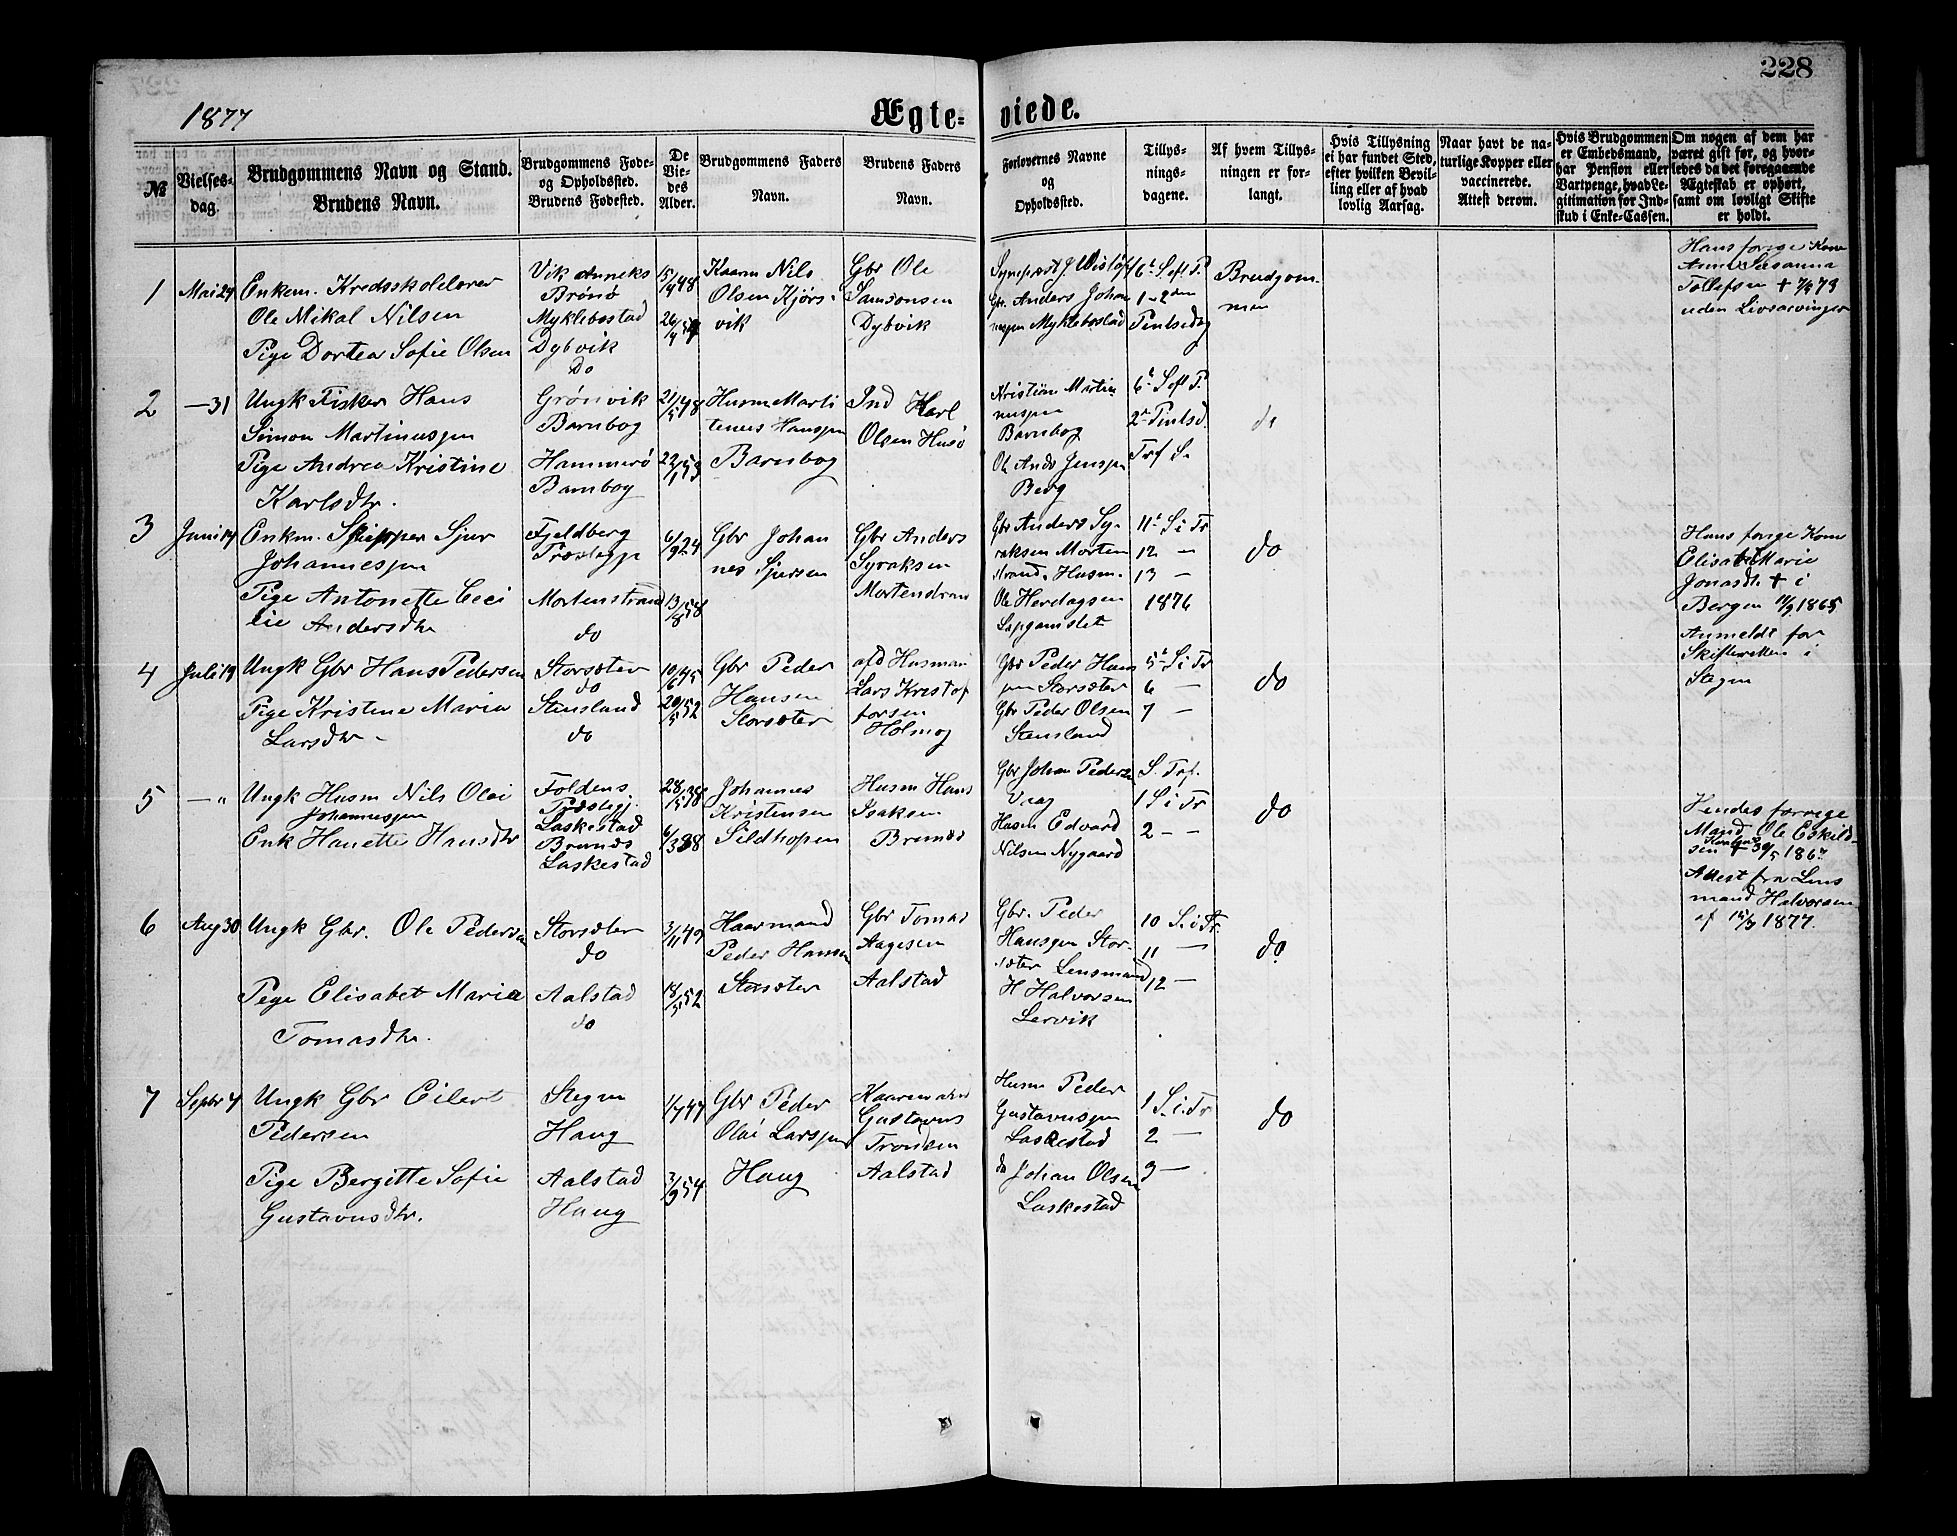 228
1877
Ægte-
viede.
№
Vielses-
dag.
Brudgommens Navn og Stand.
Brudens Navn.
Brudgommens Føde-
og Opholdssted.
Brudens Fødested.
De
Vie-
des
Alder.
Brudgommens Faders
Navn.
Brudens Faders
Navn.
Forlovernes Navne
og
Opholdssted.
Tillys-
nings-
dagene.
Af hvem Tillys-
ningen er for-
langt.
Hvis Tillysning
ei har fundet Sted,
efter hvilken Bevil-
ling eller af hvad
lovlig Aarsag.
Naar havt de na-
turlige Kopper eller
vaccinerede.
Attest derom.
Hvis Brudgommen
er Embedsmand,
har Pension eller
Vartpenge, hvad Le-
gitimation for Ind-
skud i Enke-Cassen.
Om nogen af dem har
været gift før, og hvor-
ledes da det foregaaende
Ægteskab er ophørt,
samt om lovligt Skifte
er holdt.
1
Mai 24
Enkem. Kredsskolelærer
Ole Mikal Nilsen
Pige Dortea Sofie Olsen
Vik Anneks
Brønø
Myklebostad
Dybvik
Do
15/4 48
26/4 54
Kaarm Nils
Olsen Kjørs-
vik
Gbr Ole
Samsonsen
Dybvik
Gbr. Anders Johan
nesen Myklebostad
6te S. ef P.
1 - 2den
Pintsedag
Brudgom-
men
Hans forrige Kone
Anne Susanna
Tollefsen + 7/8 73
uden Livsarvinger
2
— 31
Ungk Fisker Hans
Simon Martinussen
Pige Andrea Kristine
Karlsdtr.
Grönvik
Barnbog
Hammerø
Barnbog
21/5 48
22/1 53
Husm Marti
tenus Hansen
Barnbog
Ind Karl
Olsen Husö
Kristian Marti-
nussen
Barnbog
Ole Ands Jensen
Berg
6te S. ef P.
2n Pintsd.
Trf S.
do
3
Juni 14
Enkm. Skipper Sjur
Johannessen
Pige Antonette Ceci
lie Andersdtr
Fjeldberg
Præstegj
Mortenstrand
do
6/9 24
13/8 58
Gbr Johan
nes Sjursen
Gbr Anders
Syraksen
Mortenstran
Gbr Anders Sy-
raksen Morten
strand. Husm.
Ole Herdagsen
11te S i Tr
12 —
13 —
1876
do
Hans forrige Kone
Elisabet Marie
Jonasdtr + i
Bergen 11/9 1865
Anmeldt for
Skifteretten i
Stegen
4
Juli 19
Ungk Gbr Hans Pedersen
Pige Kristine Maria
Larsdtr -
Storsæter
do
Stensland
do
10/6 45
29/5 52
Gbr Peder
Hansen
Storsæter
afd Husman
Lars Kristof
fersen
Holmog
Gbr Peder Hans
sen Storsæter
Gbr Peder Olsen
Stensland
5te S i Tr
6 —
7 —
do
5
— "
Ungk Husm Nils Olai
Johannessen
Enk Hanette Hansdtr
Foldens
Præstegj.
Laskestad
Brenæs
Laskestad
28/5 38
6/3 38
Johannes
Kristensen
Sildhopen
Husm Hans
Isaksen
Brenæs
Gbr Johan Pedersen
Vaag
Husm Edvard
Nilsen Nygaard
S. Trf.
1 S i Tr
2 - -
do
Hendes forrige
Mand Ole Eskild-
sen + 30/5 1867
Attest fra Lens
mand Halvorsen
af 15/7 1877.
6
Aug 30
Ungk Gbr. Ole Pedersen
Pige Elisabet Maria
Tomasdtr.
Storsæter
do
Aalstad
do
3/11 49
18/5 52
Kaarmand
Peder Hansen
Storsæter
Gbr Tomas
Aagesen
Aalstad
Gbr. Peder
Hansen Stor-
sæter Lensmand
H Halvorsen
Lervik
10 S. i Tr.
11 —
12 —
do
7
Septbr 7
Ungk Gbr Eilert
Pedersen
Pige Bergitte Sofie
Gustavusdtr.
Stegen
Haug
Aalstad
Haug
1/7 47
3/9 54
Gbr Peder
Olai Larssen
Haug
Kaaremand
Gustavus
Tronsen
Aalstad
Husm Peder
Gustavussen
Laskestad
do Johan Olsen
Laskestad
1 S. i Tr
2 —
3 —
do